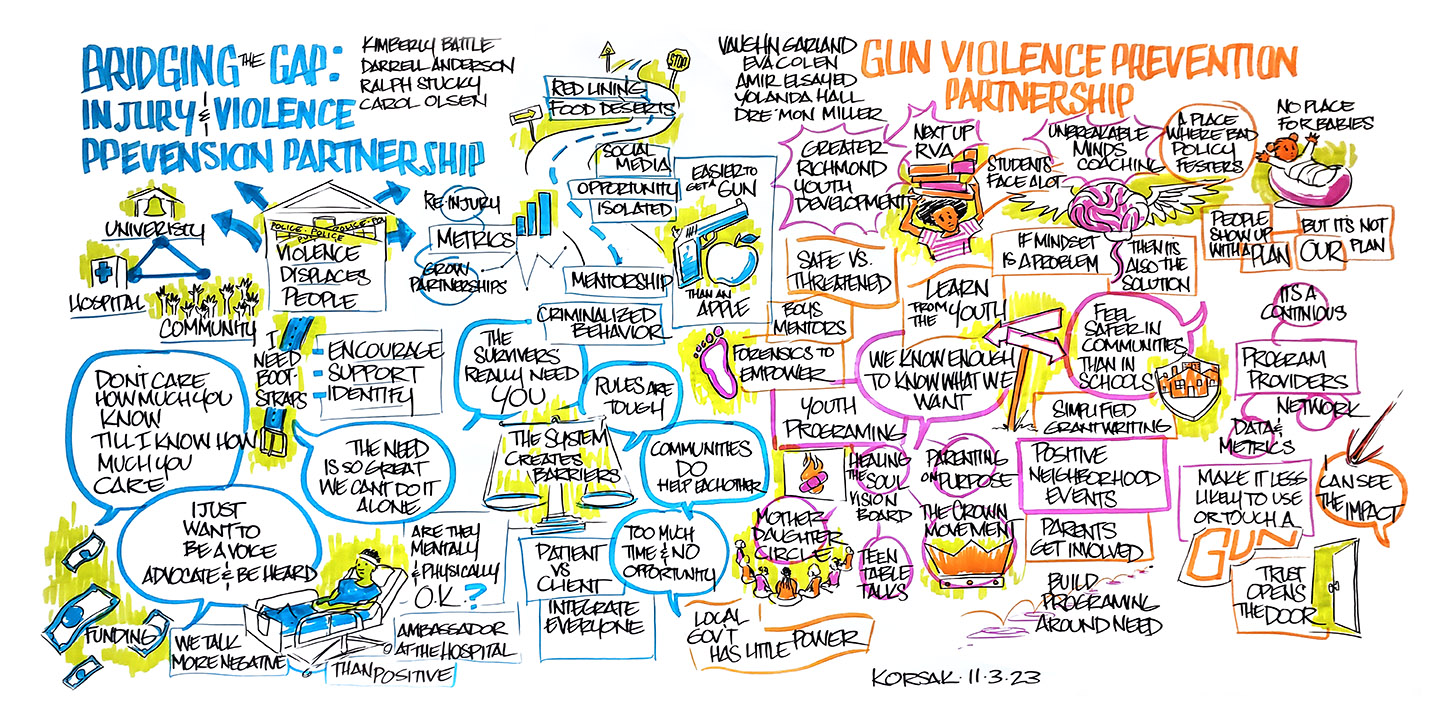 BRIDGING THE GAP:
INJURY & VIOLENCE
PPEVENSION PARTNERSHIP
KIMBERLY BATTLE
DARRELL ANDERSON
RALPH STUCKY
CAROL OLSEN
UNIVERISTY
HOSPITAL
COMMUNITY
POLICE·POLICE
VIOLENCE
DISPLACES
PEOPLE
RE-INJURY
METRICS
GROW
PARTNERSHIPS
STOP
RED LINING
FOOD DESERTS
SOCIAL
MEDIA
OPPORTUNITY
ISOLATED
MENTORSHIP
CRIMINALIZED
BEHAVIOR
EASIER TO
GET A GUN
THAN AN
APPLE
I
NEED
BOOT
STRAPS
ENCOURAGE
SUPPORT
IDENTIFY
DON'T CARE
HOW MUCH YOU
KNOW
TILL I KNOW HOW
MUCH YOU
CARE
THE
SURVIVERS
REALLY NEED
YOU
RULES ARE
TOUGH
THE NEED
IS SO GREAT
WE CANT DO IT
ALONE
THE SYSTEM
CREATES
BARRIERS
COMMUNITIES
DO
HELP EACHOTHER
I JUST
WANT TO
BE A VOICE
ADVOCATE & BE HEARD
ARE THEY
MENTALLY
& PHYSICALLY
O.K.?
PATIENT
VS
CLIENT
TOO MUCH
TIME & NO
OPPORTUNITY
INTEGRATE
EVERYONE
FUNDING
WE TALK
MORE NEGATIVE
THAN POSITIVE
AMBASSADOR
AT THE HOSPITAL
VAUGHN GARLAND
EVA COLEN
AMIR ELSAYED
YOLANDA HALL
DRE'MON MILLER
GUN VIOLENCE PREVENTION
PARTNERSHIP
GREATER
RICHMOND
YOUTH
DEVELOPMENT
NEXT UP
RVA
STUDENTS
FACE A LOT
UNBREAKABLE
MINDS
COACHING
A PLACE
WHERE BAD
POLICY
FESTERS
NO PLACE
FOR BABIES
PEOPLE
SHOW UP
WITH A PLAN
BUT IT'S NOT
OUR PLAN
SAFE VS.
THREATENED
IF MINDSET
IS A PROBLEM
THEN ITS
ALSO THE
SOLUTION
BOYS
MENTORS
FORENSICS TO
EMPOWER
LEARN
FROM THE YOUTH
WE KNOW ENOUGH
TO KNOW WHAT WE
WANT
FEEL
SAFER IN
COMMUNITIES
THAN IN
SCHOOLS
ITS A
CONTINIOUS
PROGRAM
PROVIDERS
NETWORK
DATA &
METRICS
YOUTH
PROGRAMING
SIMPLIFIED
GRANTWRITING
HEALING
THE SOUL
VISION
BOARD
PARENTING
ON PURPOSE
POSITIVE
NEIGHBORHOOD
EVENTS
MAKE IT LESS
LIKELY TO USE
OR TOUCH A
GUN
I CAN SEE
THE IMPACT
MOTHER
DAUGHTER
CIRCLE
THE CROWN
MOVEMENT
PARENTS
GET INVOLVED
TEEN
TABLE
TALKS
BUILD
PROGRAMING
AROUND NEED
TRUST
OPENS
THE DOOR
LOCAL
GOV'T
HAS LITTLE POWER
KORSAK·11·3·23